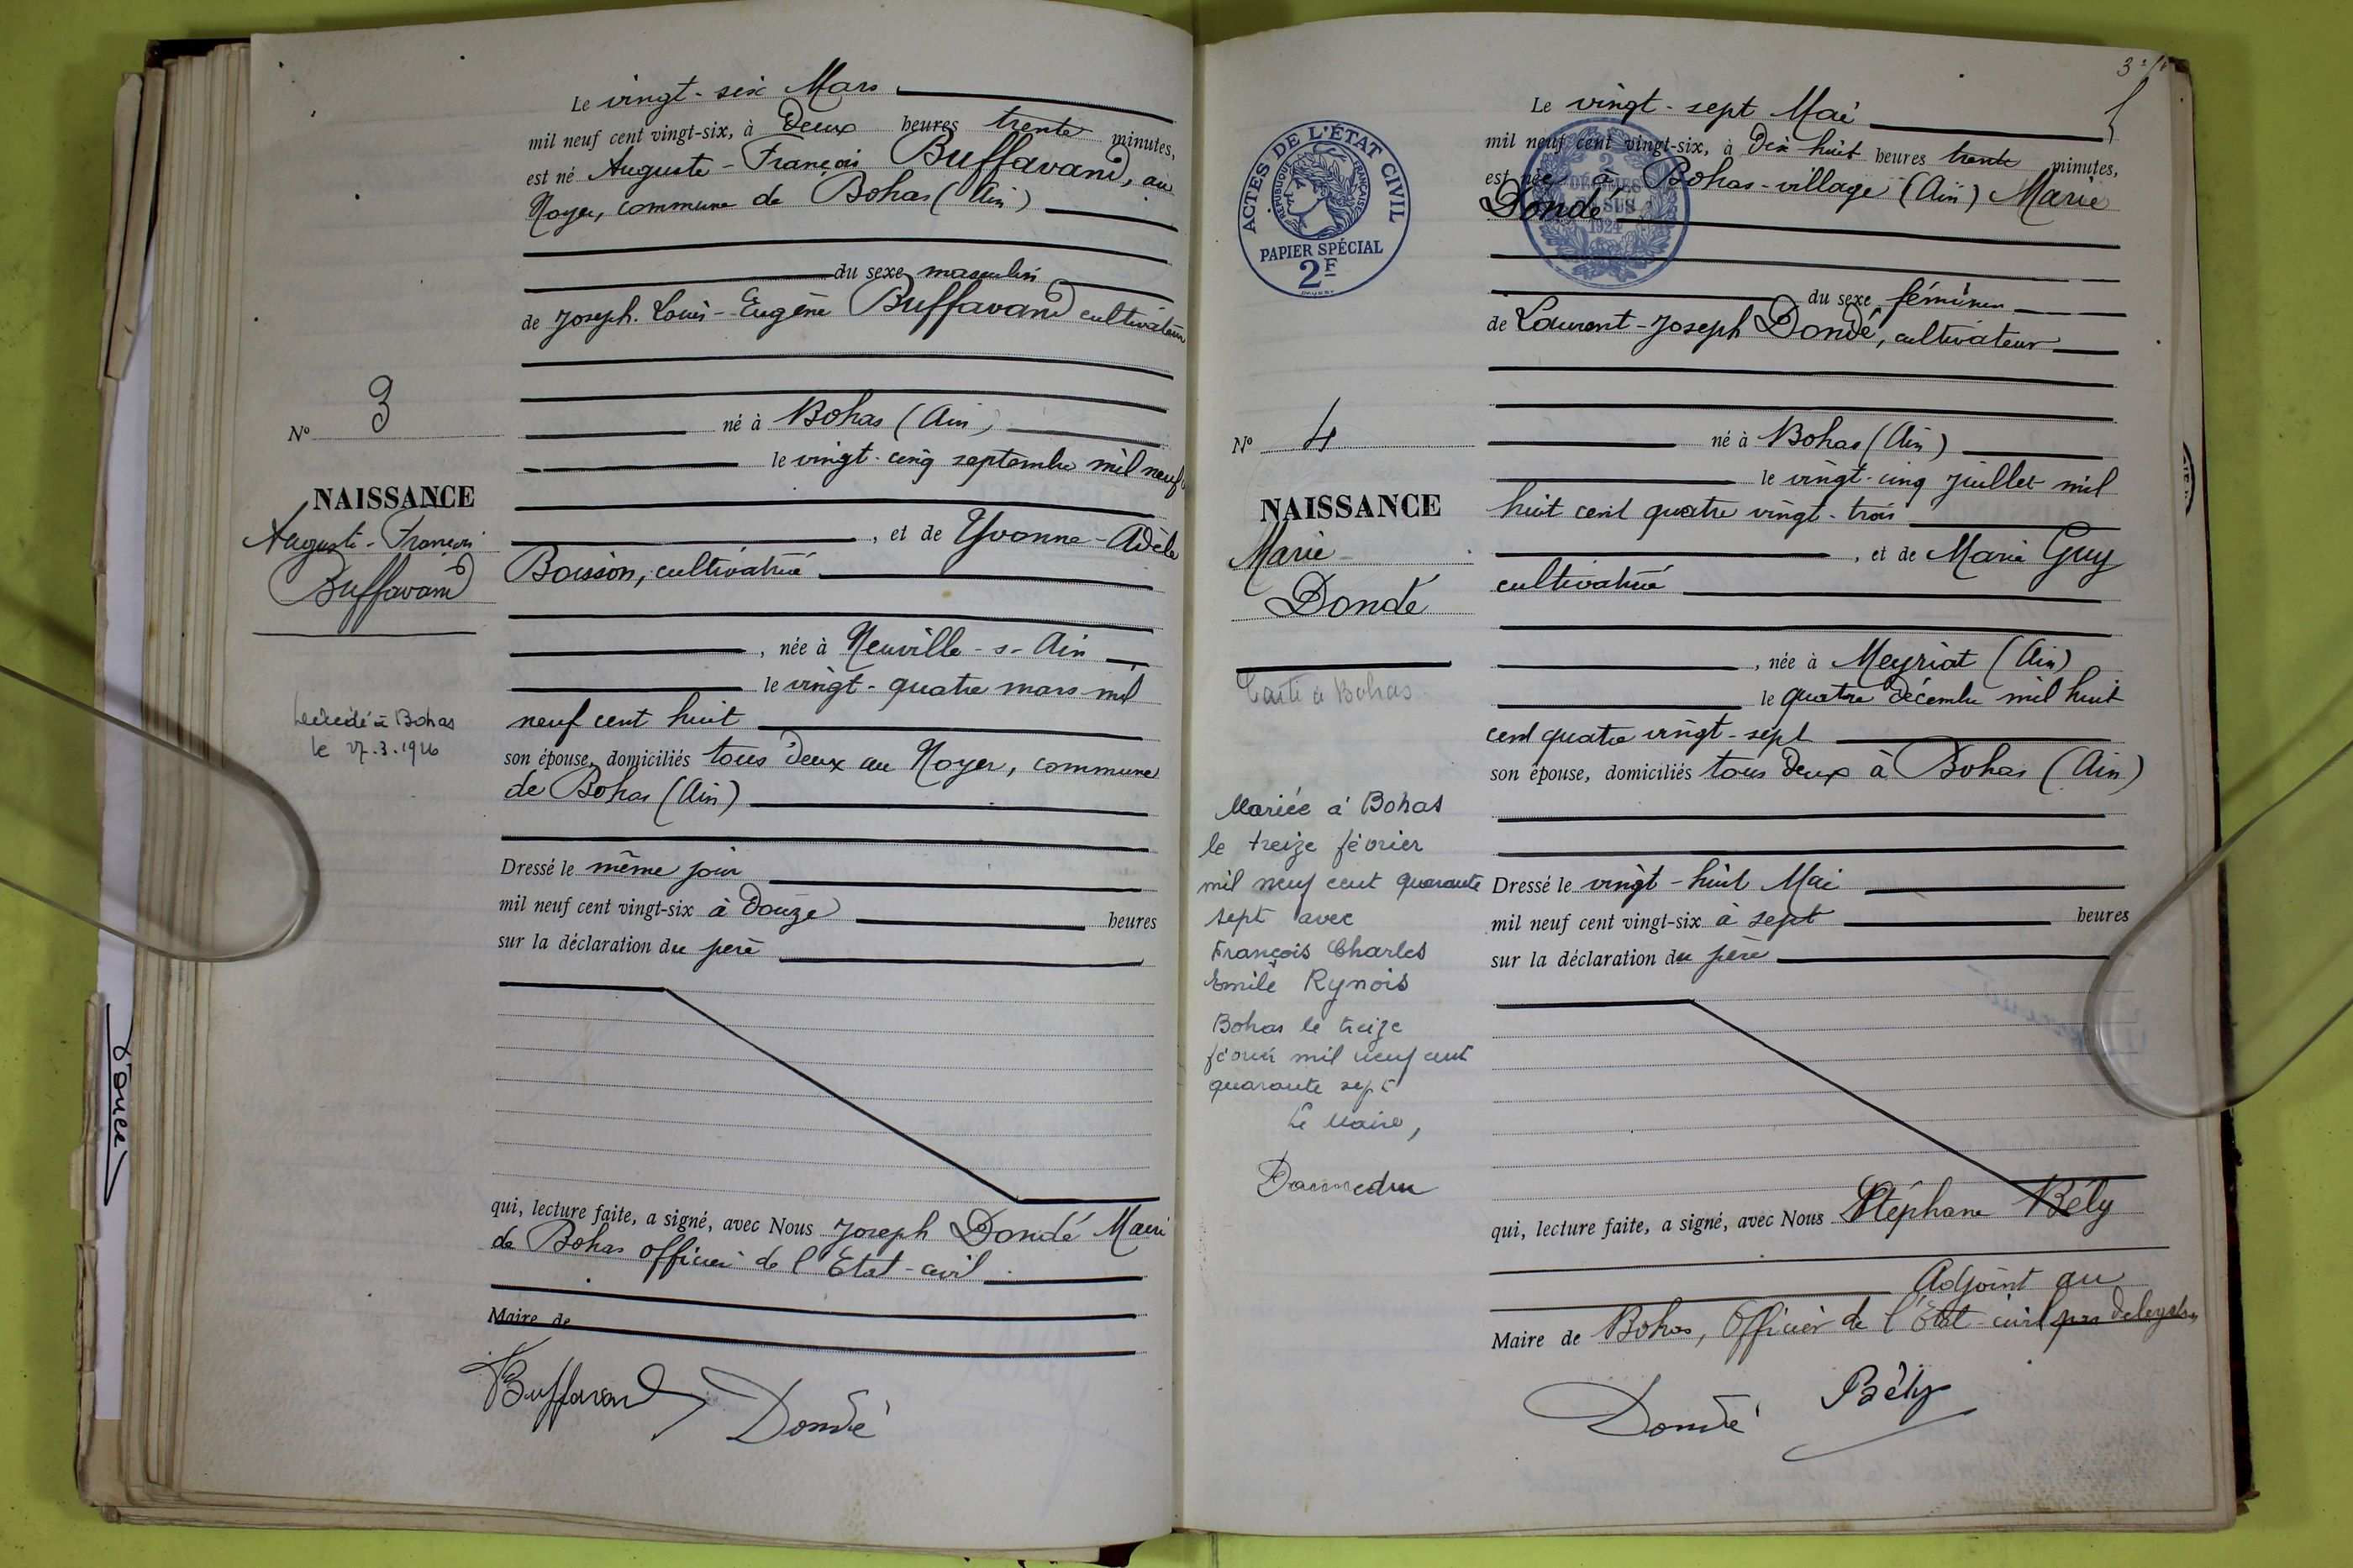 Le vingt-six Mars
mil neuf cent vingt-six, à Deux heures trente minutes,
est né Auguste-François Buffavand, au
Noyer, commune de Bohas (Ain)
du sexe masculin
de Joseph-Louis-Eugène Buffavand cultivateur
né à Bohas (Ain)
le vingt-cinq septembre mil neuf
, et de Yvonne-Adèle
Boisson, cultivatrice
, née à Neuville-s-Ain
le vingt-quatre mars mil
neuf cent huit
son épouse, domiciliés tous deux au Noyer, commune
de Bohas (Ain)
Dressé le même jour
mil neuf cent vingt-six à Douze heures
sur la déclaration du père
qui, lecture faite, a signé, avec Nous Joseph Dondé Maire
de Bohas officier de l'Etat-civil
Maire de
Buffavand Dondé
No 3
NAISSANCE
Auguste-François
Buffavand
Décédé à Bohas
le 27.3.1926
3
ACTES DE L'ÉTAT CIVIL
RÉPUBLIQUE FRANÇAISE
PAPIER SPÉCIAL
2F
2
DÉCIMES
SUS
1924
Le vingt-sept Mai
mil neuf cent vingt-six, à Dix huit heures trente minutes,
est née à Bohas-village (Ain) Marie
Dondé
du sexe féminin
de Laurent-Joseph Dondé, cultivateur
né à Bohas (Ain)
le vingt-cinq juillet mil
huit cent quatre vingt-trois
, et de Marie Guy
cultivatrice
, née à Meyriat (Ain)
le quatre décembre mil huit
cent quatre vingt-sept
son épouse, domiciliés tous deux à Bohas (Ain)
Dressé le vingt-huit Mai
mil neuf cent vingt-six à sept heures
sur la déclaration du père
qui, lecture faite, a signé, avec Nous Stéphane Bély
Adjoint au
Maire de Bohas, Officier de l'Etat-civil par délégation
Dondé Bély
No 4
NAISSANCE
Marie
Dondé
à Bohas
Mariée à Bohas
le treize février
mil neuf cent quarante
sept avec
François Charles
Emile Rynois
Bohas le treize
février mil neuf cent
quarante sept
Le Maire,